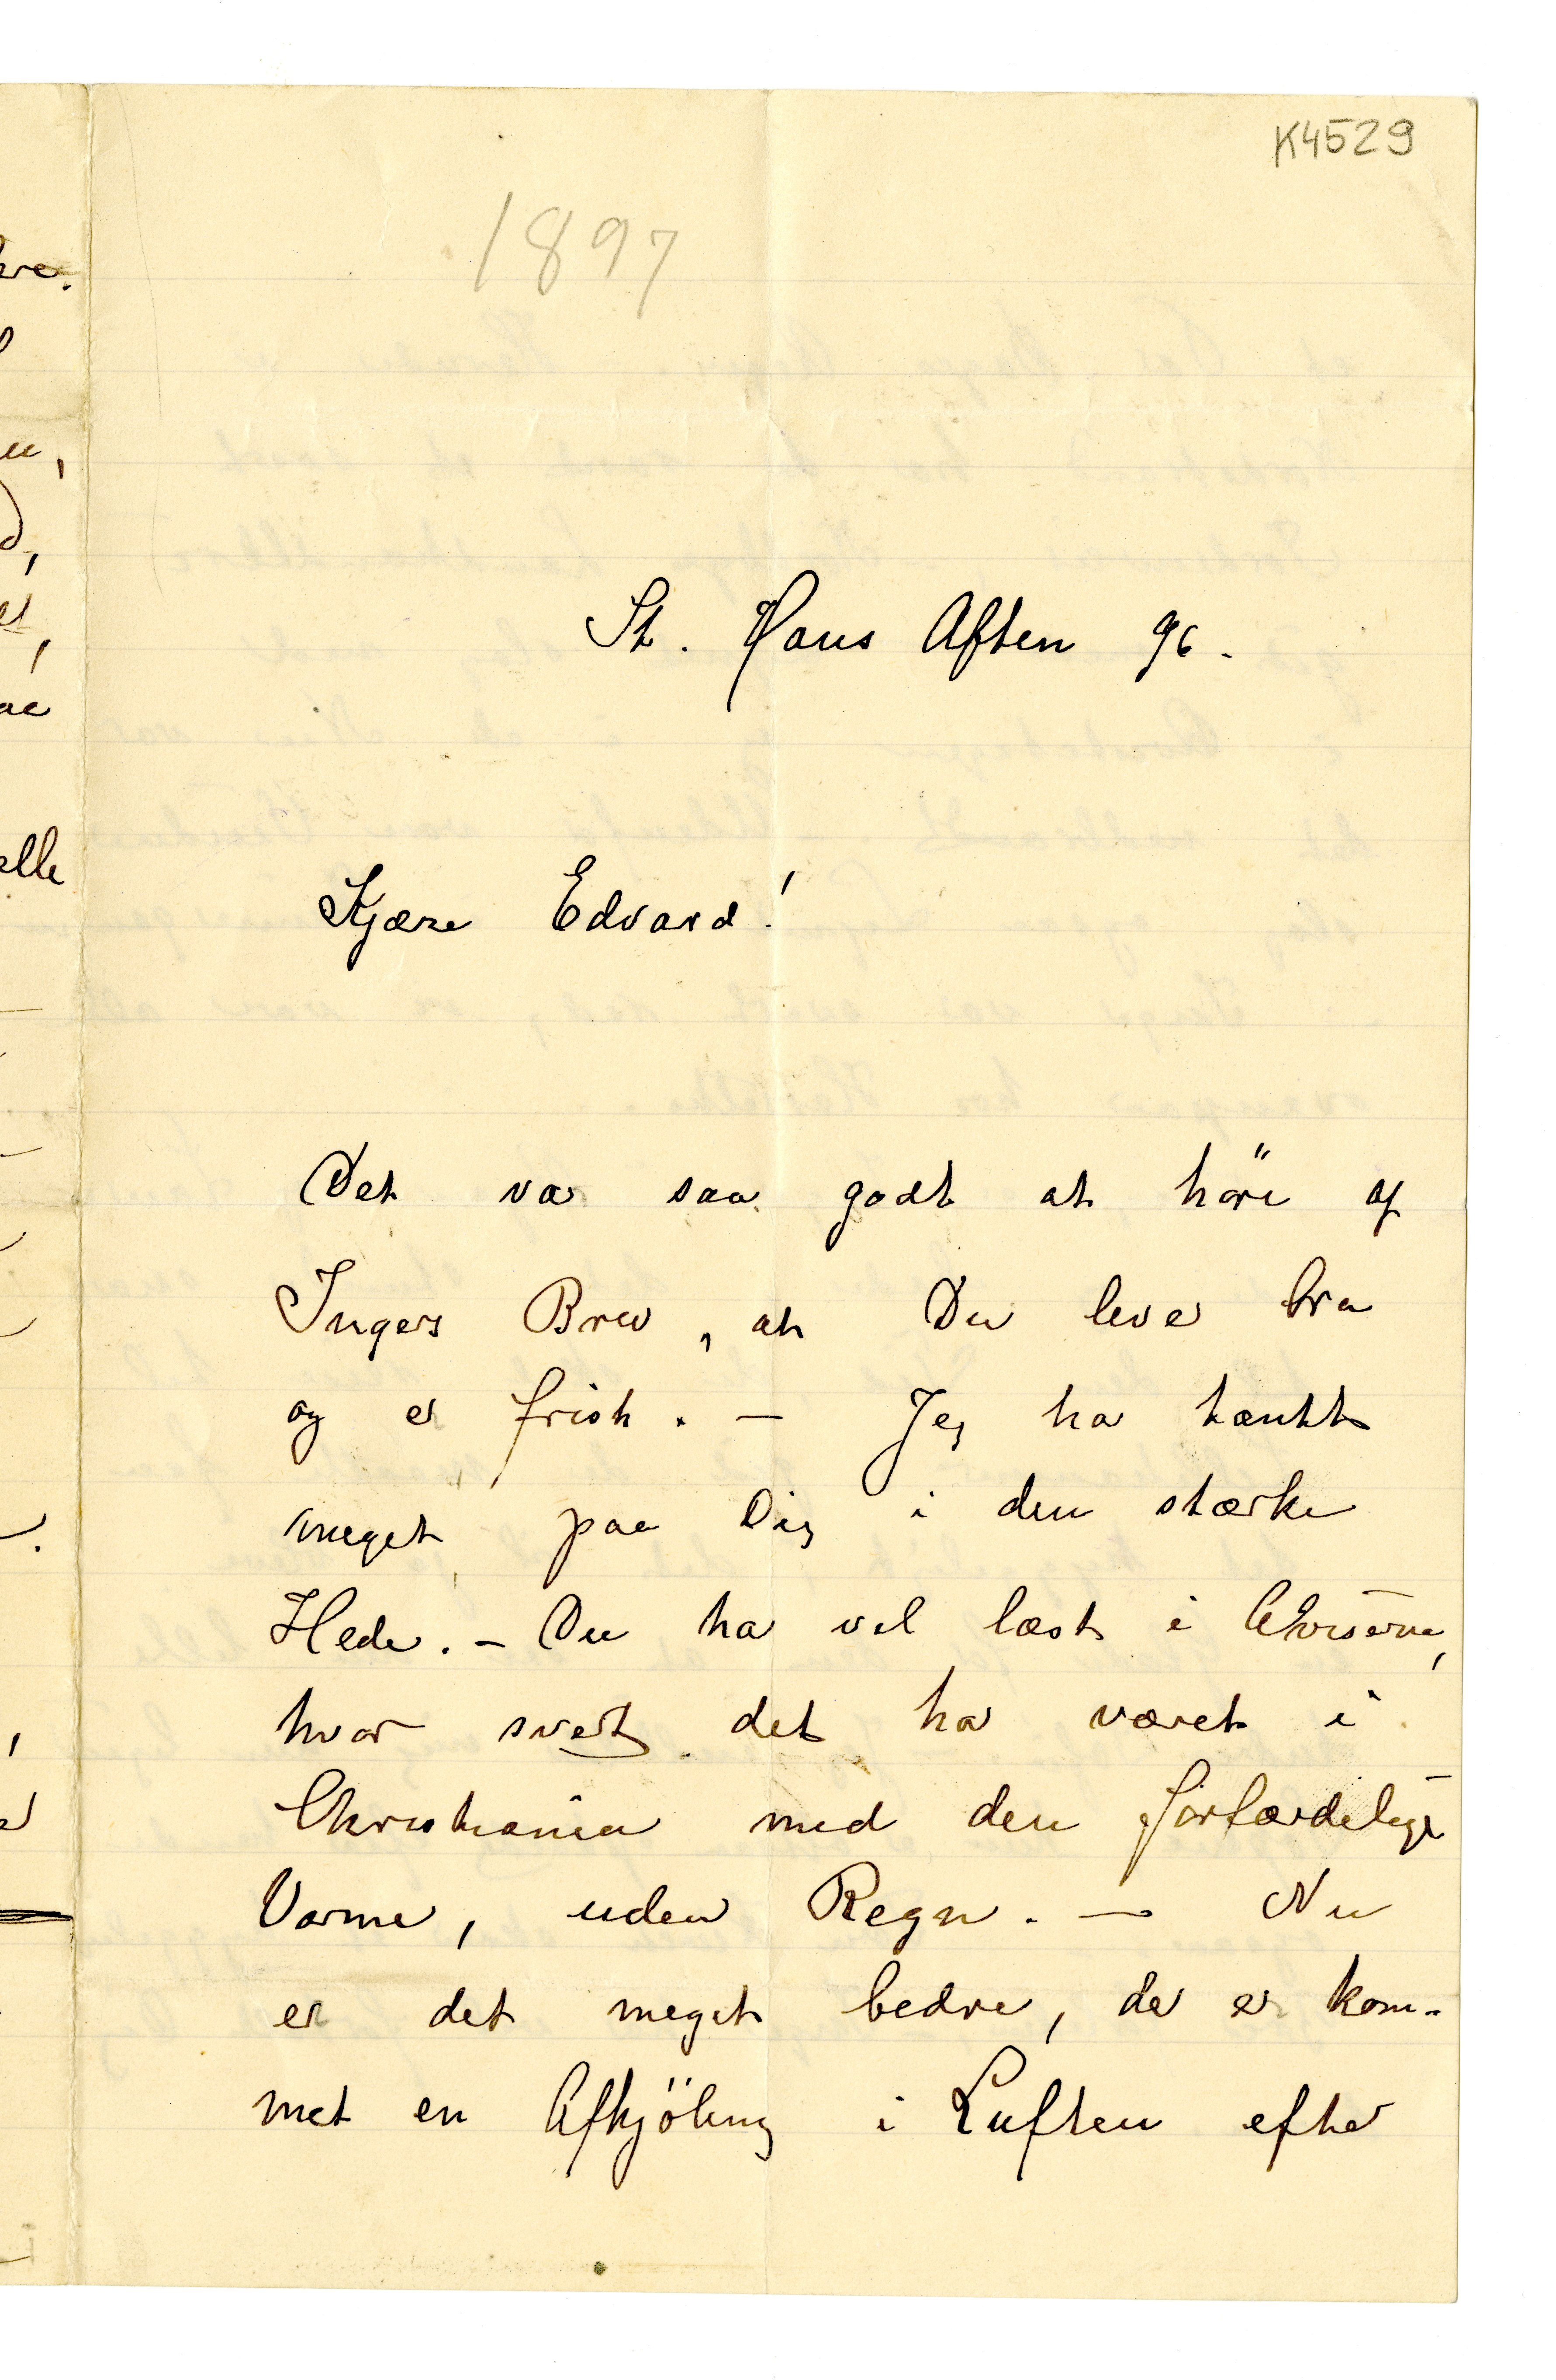 K4529
1897
St. Hans Aften 96.
Kjære Edvard!
Det var saa godt at höre af
Ingers Brev, at Du lever bra
og er frisk. — Jeg har tænkt
meget paa Dig i den stærke
Hede. — Du har vel læst i Aviserne,
hvor svert det har været i
Christiania med den forfærdelige
Varme, uden Regn. — Nu
er det meget bedre, der er kom-
met en Afkjöling i Luften efter
elle